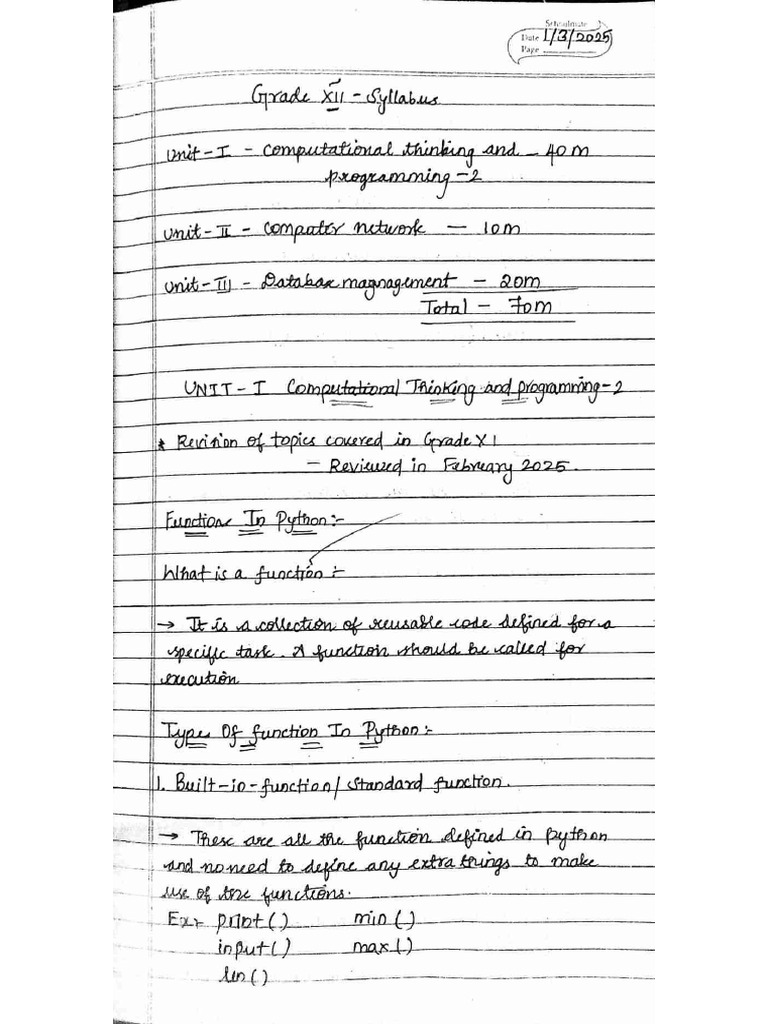 Schoolmate
Date 1/3/2025
Page
Grade XII - Syllabus
Unit-I - Computational thinking and - 40m
programming-2
Unit-II - Computer network - 10m
Unit-III - Database magnagement - 20m
Total - 70m
UNIT-I Computational Thinking and programming-2
* Revision of topics covered in Grade XI
- Reviewed in February 2025.
Functions In Python:-
What is a function:-
→ It is a collection of reusable code defined for a
specific task. A function should be called for
execution
Types Of function In Python:-
1. Built-in-function/ Standard function.
→ These are all the function defined in python
and no need to define any extra things to make
use of the functions.
Ex:- print() min()
input() max()
len()